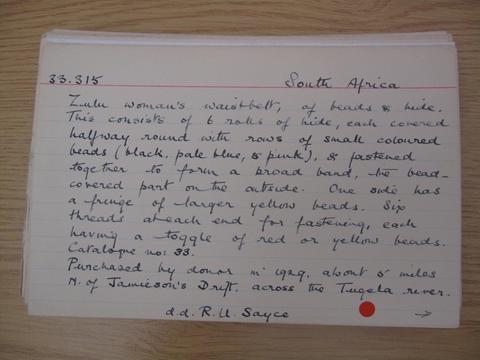 33.315 South Africa
Zulu woman's waist-belt, of beads & hide.
This consists of 6 rolls of hide, each covered
halfway round with rows of small coloured
beads (black, pale blue, & pink), & fastened
together to form a broad band, the bead-
covered part on the outside. One side has
a fringe of larger yellow beads. Six
threads at each end for fastening, each
having a toggle of red or yellow beads.
Catalogue no: 33.
Purchased by donor in 1929, about 5 miles
N. of Jamieson's Drift, across the Tugela river.
d.d. R. U. Sayce →